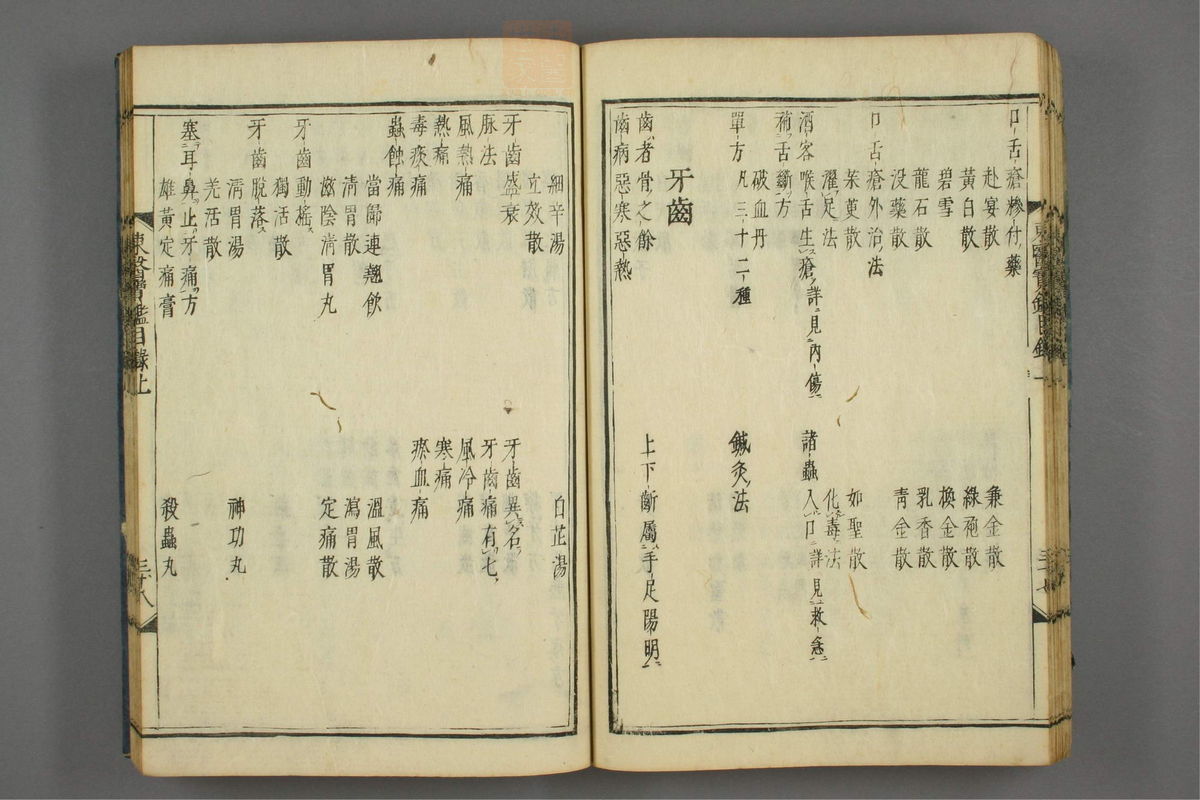 口舌瘡糝付藥
赴宴散
兼金散
黃白散
綠袍散
碧雪
換金散
龍石散
乳香散
没藥散
靑金散
口舌瘡外治法
茱萸散
如聖散
濯足法
化毒法
酒客喉舌生瘡詳見内傷
諸蟲入口詳見救急
補舌斷方
破血丹
單方凡三十二種
鍼灸法
牙齒
齒者骨之餘
上下齗屬手足陽明
齒病惡寒惡熱
細辛湯
白芷湯
立效散
牙齒盛衰
牙齒異名
脉法
牙齒痛有七
風熱痛
風冷痛
熱痛
寒痛
毒痰痛
瘀血痛
蟲蝕痛
當歸連翹飮
溫風散
淸胃散
瀉胃湯
滋陰淸胃丸
定痛散
牙齒動搖
獨活散
牙齒脫落
淸胃湯
神功丸
羌活散
塞耳鼻止牙痛方
雄黃定痛膏
殺蟲丸
東醫寶鑑目錄上
三十八